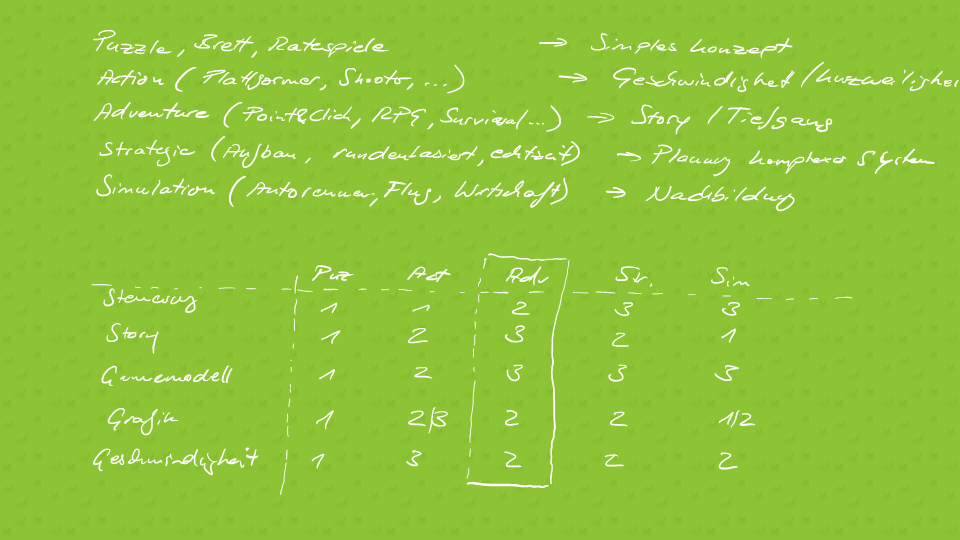 Puzzle, Brett, Ratespiele → Simples Konzept
Action (Plattformer, Shooter, ...) → Geschwindigkeit / Kurzweiligkei
Adventure (Point&Click, RPG, Survival...) → Story / Tiefgang
Strategie (Aufbau, rundenbasiert, echtzeit) → Planung komplexer Systeme
Simulation (Autorennen, Flug, Wirtschaft) → Nachbildung
Puz Act Adv Str. Sim
Steuerung 1 1 2 3 3
Story 1 2 3 2 1
Gamemodell 1 2 3 3 3
Grafik 1 2/3 2 2 1/2
Geschwindigkeit 1 3 2 2 2